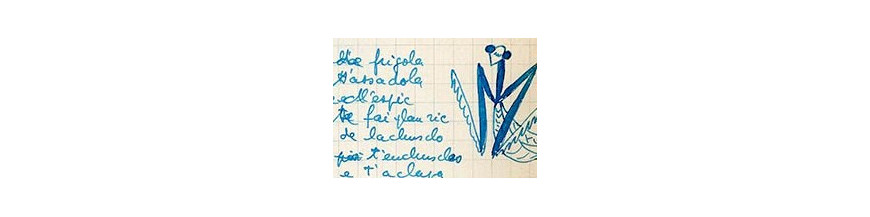 De frigola
t'assadola
e d'espic
te fai glau ric
de lachusclo
t'enchusclas
e t'aclapa